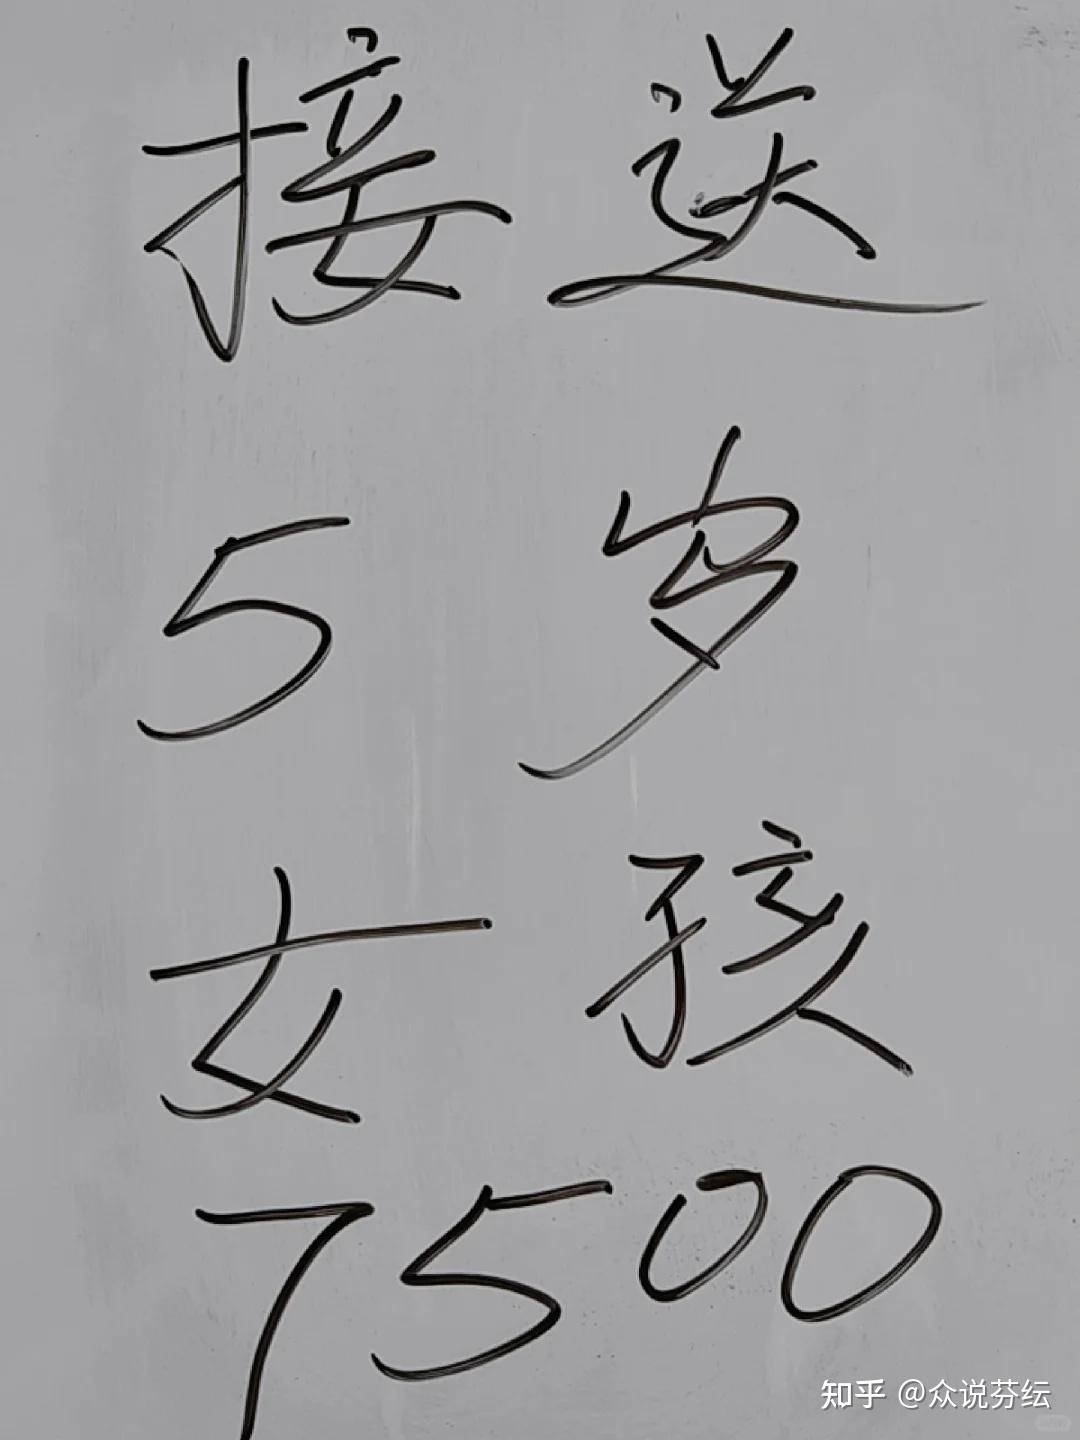 接送
5岁
女孩
7500
知乎 @众说芬纭